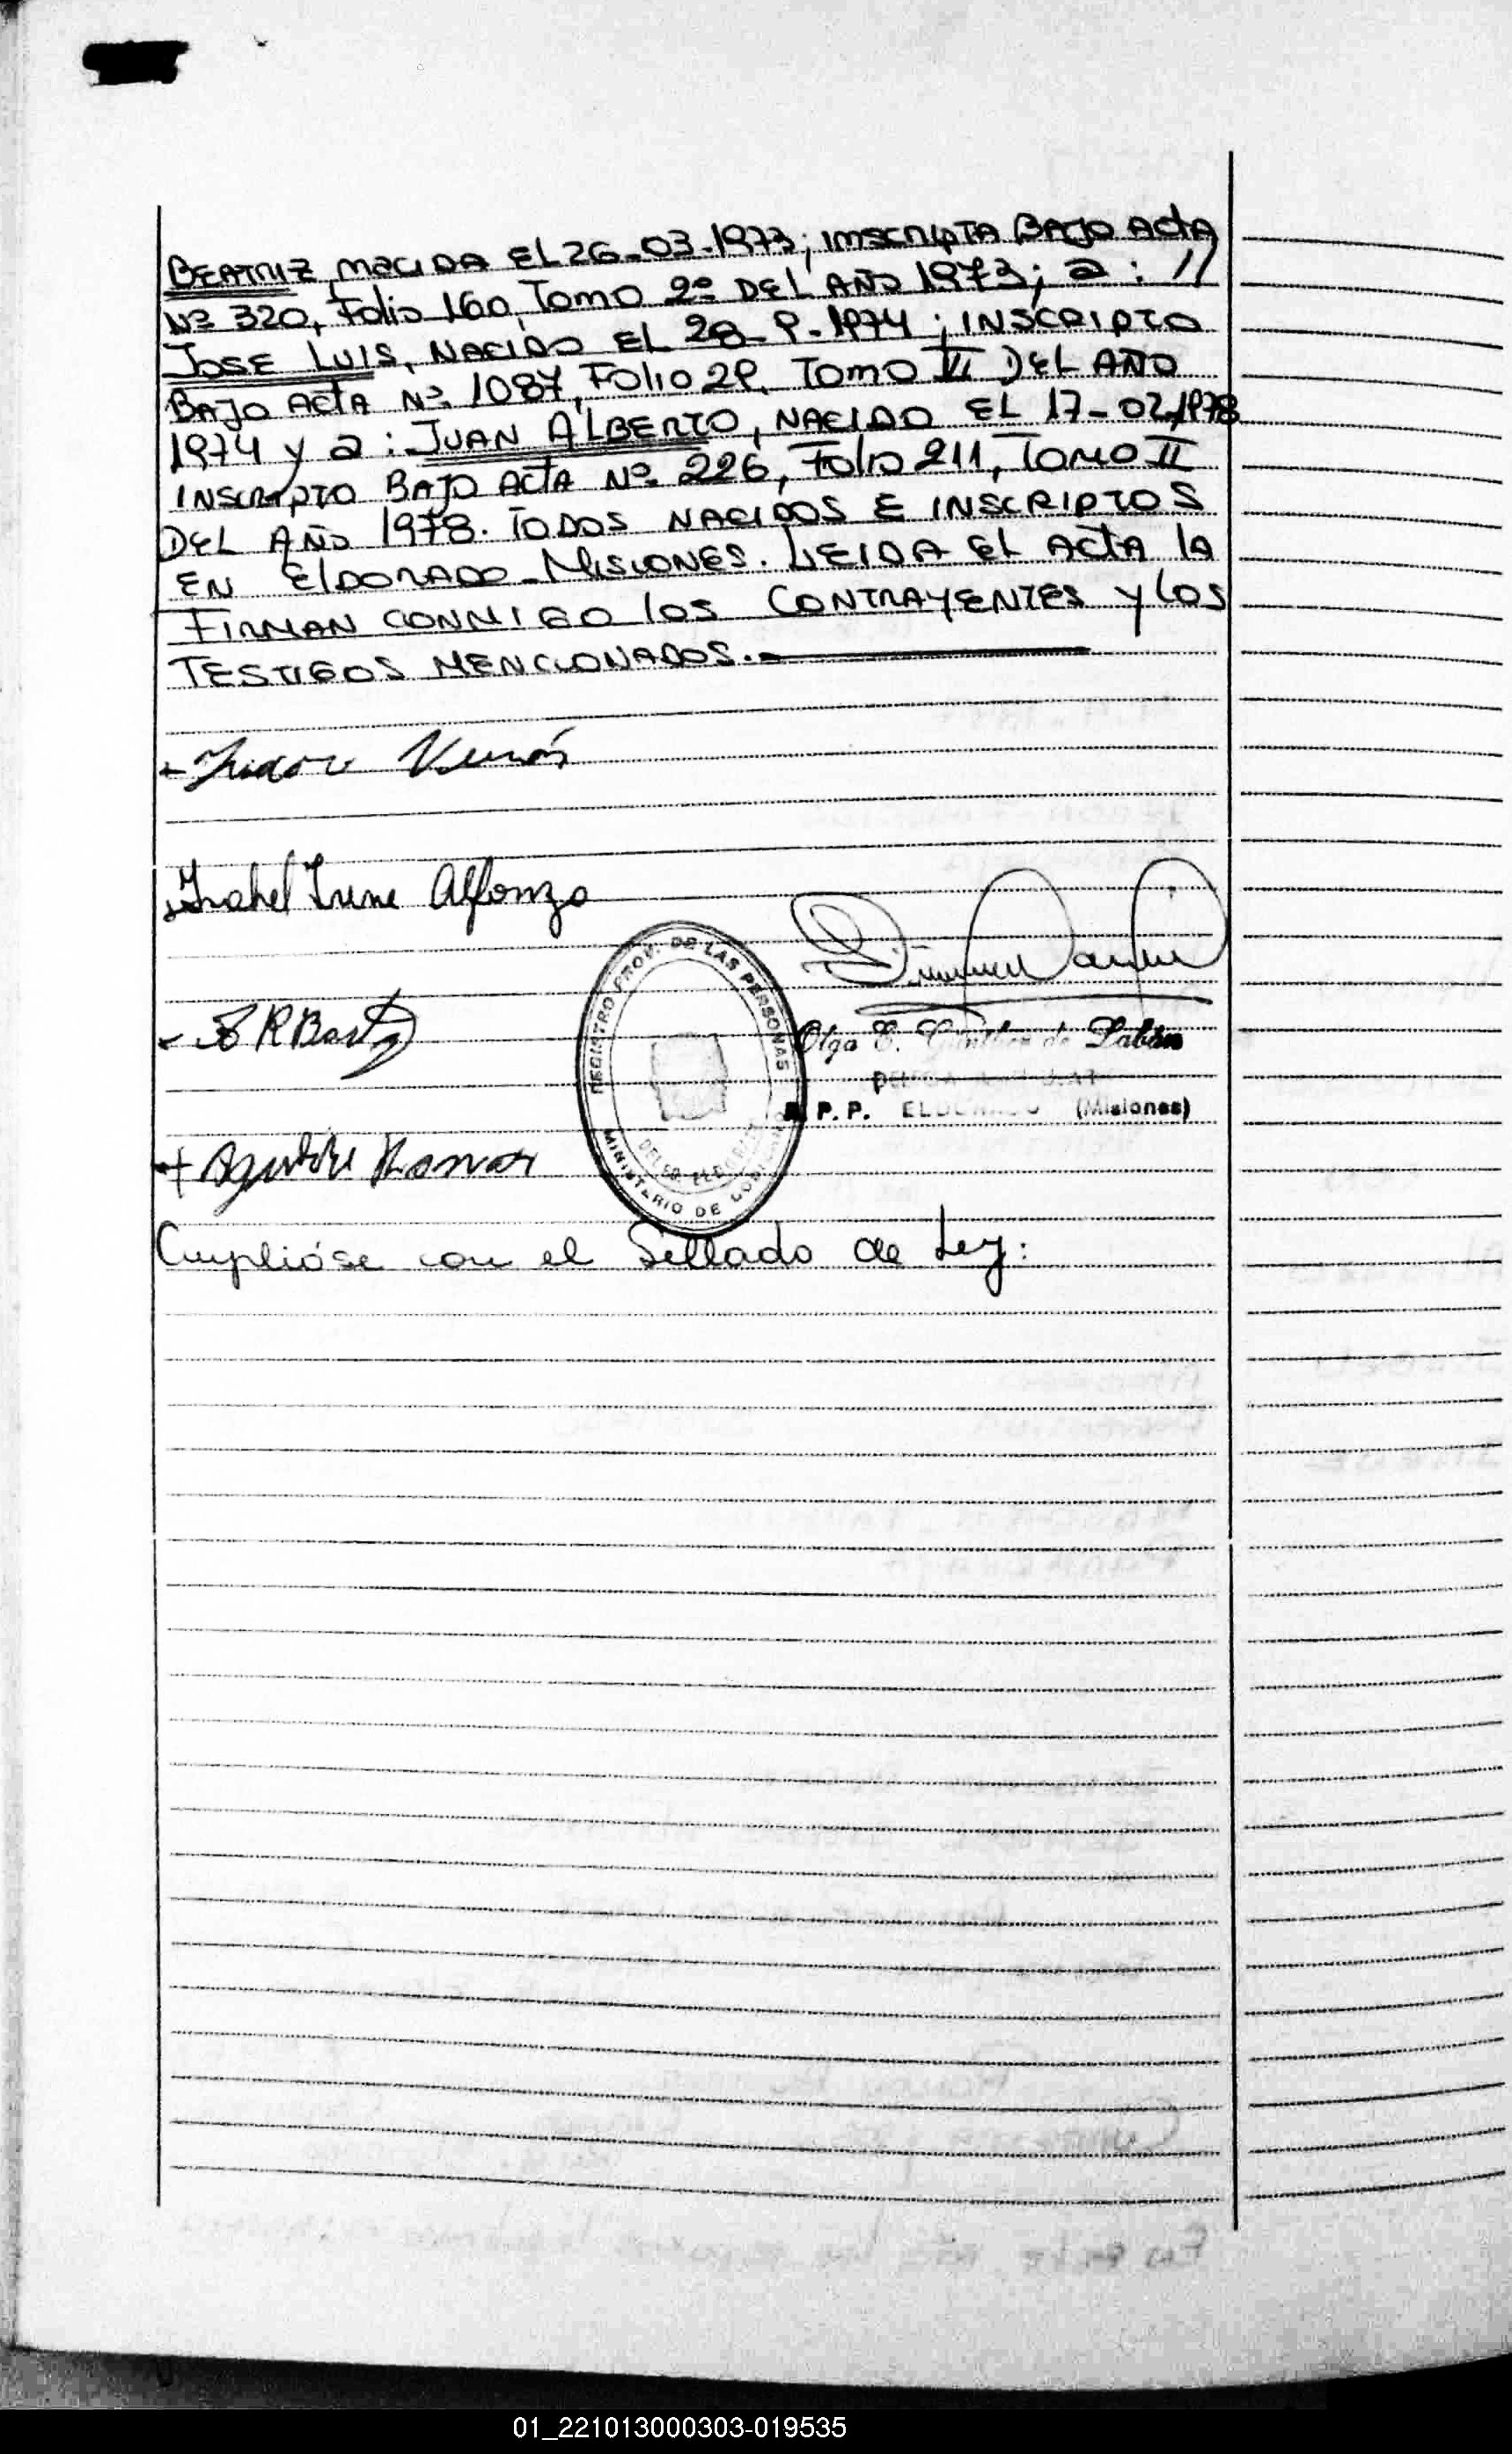 BEATRIZ, nacida EL 26-03-1973; inscripta BAJO Acta
Nº 320, Folio 160, Tomo 2º DEL AÑO 1973; a: //
JOSE LUIS, NACIDO EL 28-9-1974; INSCRIPTO
BAJO Acta Nº 1087, Folio 29, Tomo VI DEL AÑO
1974 y a: JUAN ALBERTO, NACIDO EL 17-02-1978
INSCRIPTO BAJO Acta Nº 226, Folio 211, Tomo II
DEL AÑO 1978. TODOS NACIDOS E INSCRIPTOS
EN ELDORADO-MISIONES. LEIDA EL ACTA la
FIRMAN CONMIGO los CONTRAYENTES y los
TESTIGOS MENCIONADOS.-
Isabel Irene Alfonzo
REGISTRO PROV. DE LAS PERSONAS
Olga E. de
R. P. P. ELDORADO (Misiones)
MINISTERIO DE GOBIERNO
Cumplióse con el Sellado de Ley:
01_221013000303-019535